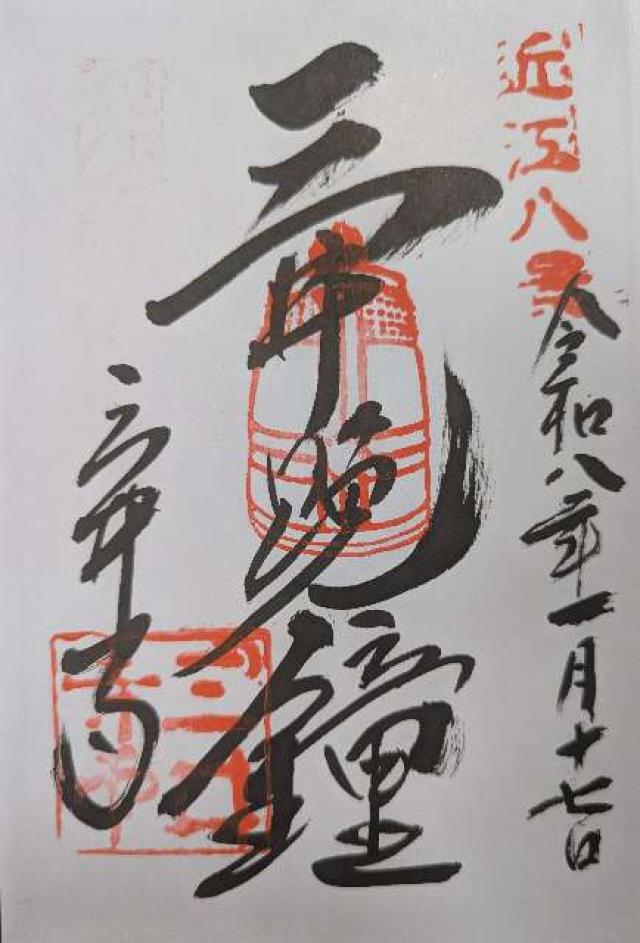 近江八景
令和八年一月十七日
三井晩鐘
三井寺